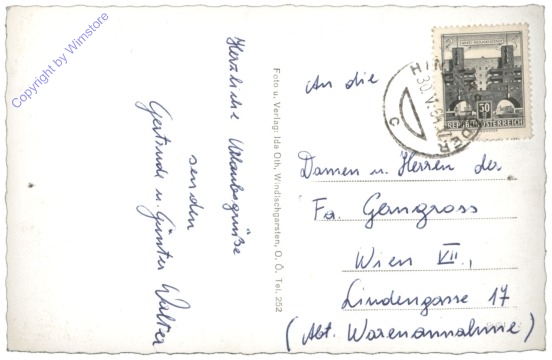 Copyright by Wimstore
Herzliche Urlaubsgrüße
senden
Gertrude u. Günter Walter
Foto u. Verlag: Ida Oth, Windischgarsten, O. Ö., Tel. 252
An die
Damen u. Herren der
Fa. Gerngross
Wien VII.,
Lindengasse 17
(Abt. Warenannahme)
50
REPUBLIK ÖSTERREICH
30.V.
C